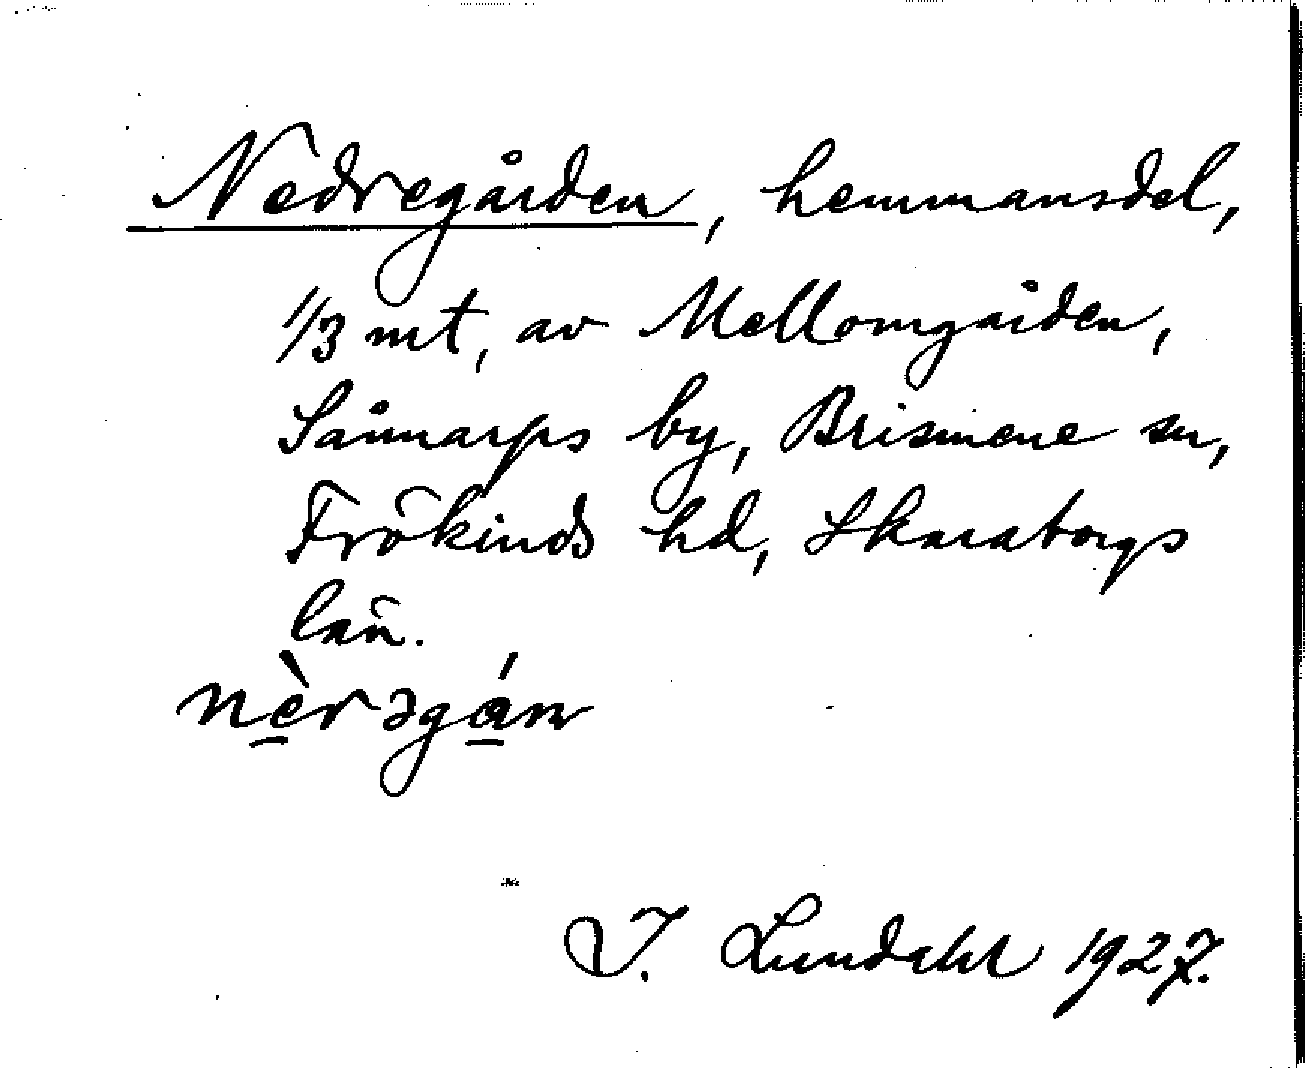 Nedregården, hemmansdel,
1/3 mt, av Mellomgården,
Sånnarps by, Brismene sn,
Frökinds hd, Skaraborgs
län.
nèrəgán
I. Lundahl 1927.